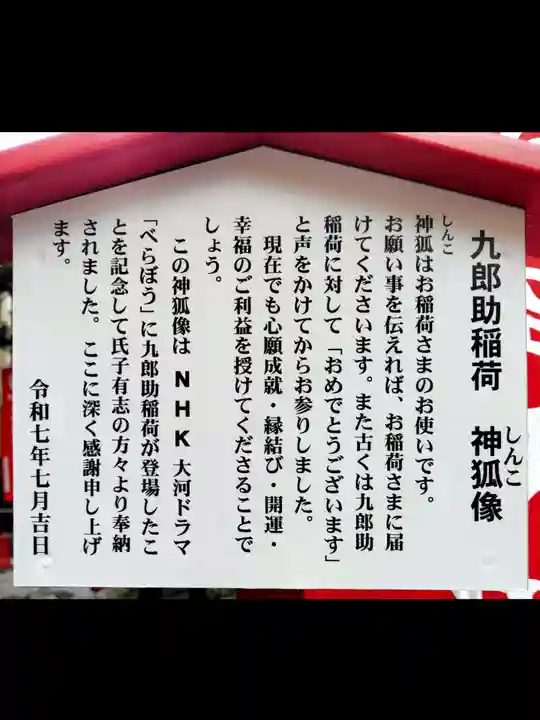 九郎助稲荷　神狐像
しんこ
しんこ
神狐はお稲荷さまのお使いです。
お願い事を伝えれば、お稲荷さまに届
けてくださいます。また古くは九郎助
稲荷に対して「おめでとうございます」
と声をかけてからお参りしました。
現在でも心願成就・縁結び・開運・
幸福のご利益を授けてくださることで
しょう。
この神狐像は NHK 大河ドラマ
「べらぼう」に九郎助稲荷が登場したこ
とを記念して氏子有志の方々より奉納
されました。ここに深く感謝申し上げ
ます。
令和七年七月吉日